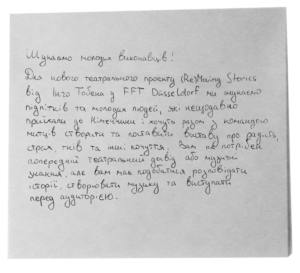 Шукаємо молодих виконавців!
Для нового театрального проєкту (Re)Maing Stories
від Інго Тобена у FFT Düsseldorf ми шукаємо
підлітків та молодих людей, які нещодавно
приїхали до Німеччини і хочуть разом з командою
митців створити та поставити виставу про радість,
страх, гнів та інші почуття. Вам не потрібен
попередній театральний досвід або музичні
знання, але вам має подобатися розповідати
історії, створювати музику та виступати
перед аудиторією.